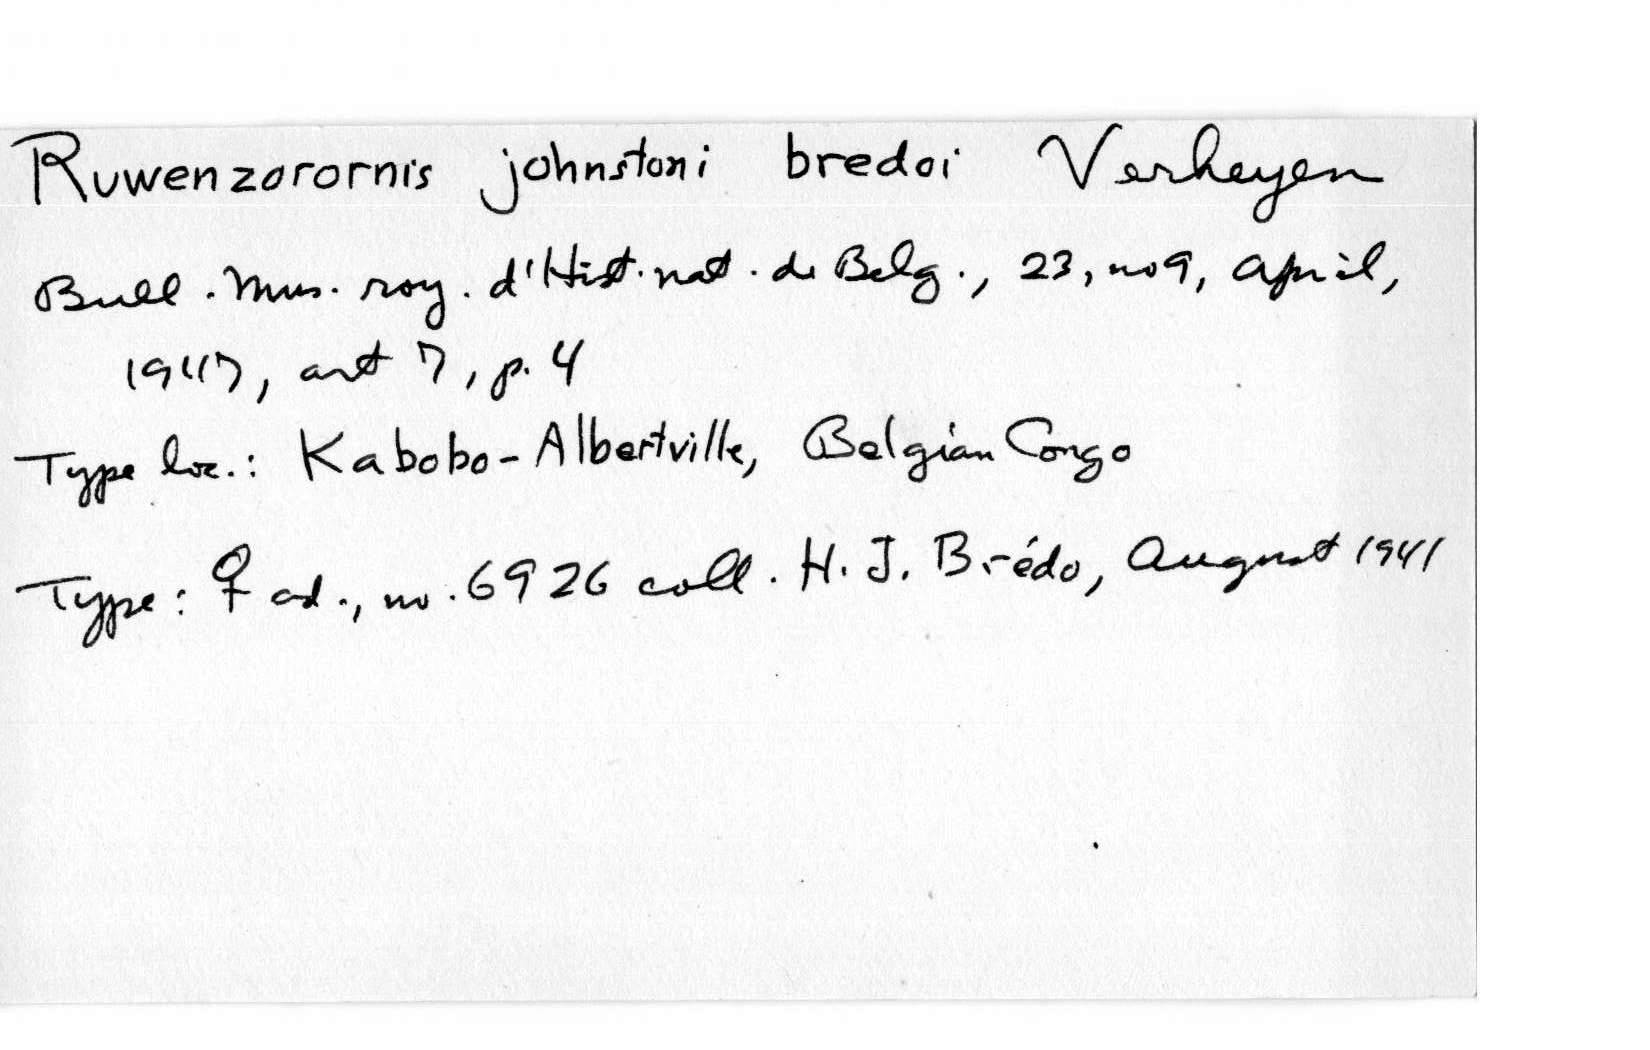 Ruwenzorornis johnstoni bredoi Verheyen
Bull. Mus. roy. d'Hist. nat. de Belg., 23, no 9, April,
1947, art 7, p. 4
Type loc.: Kabobo-Albertville, Belgian Congo
Type: ♀ ad., no. 6926 coll. H. J. Brédo, August 1941